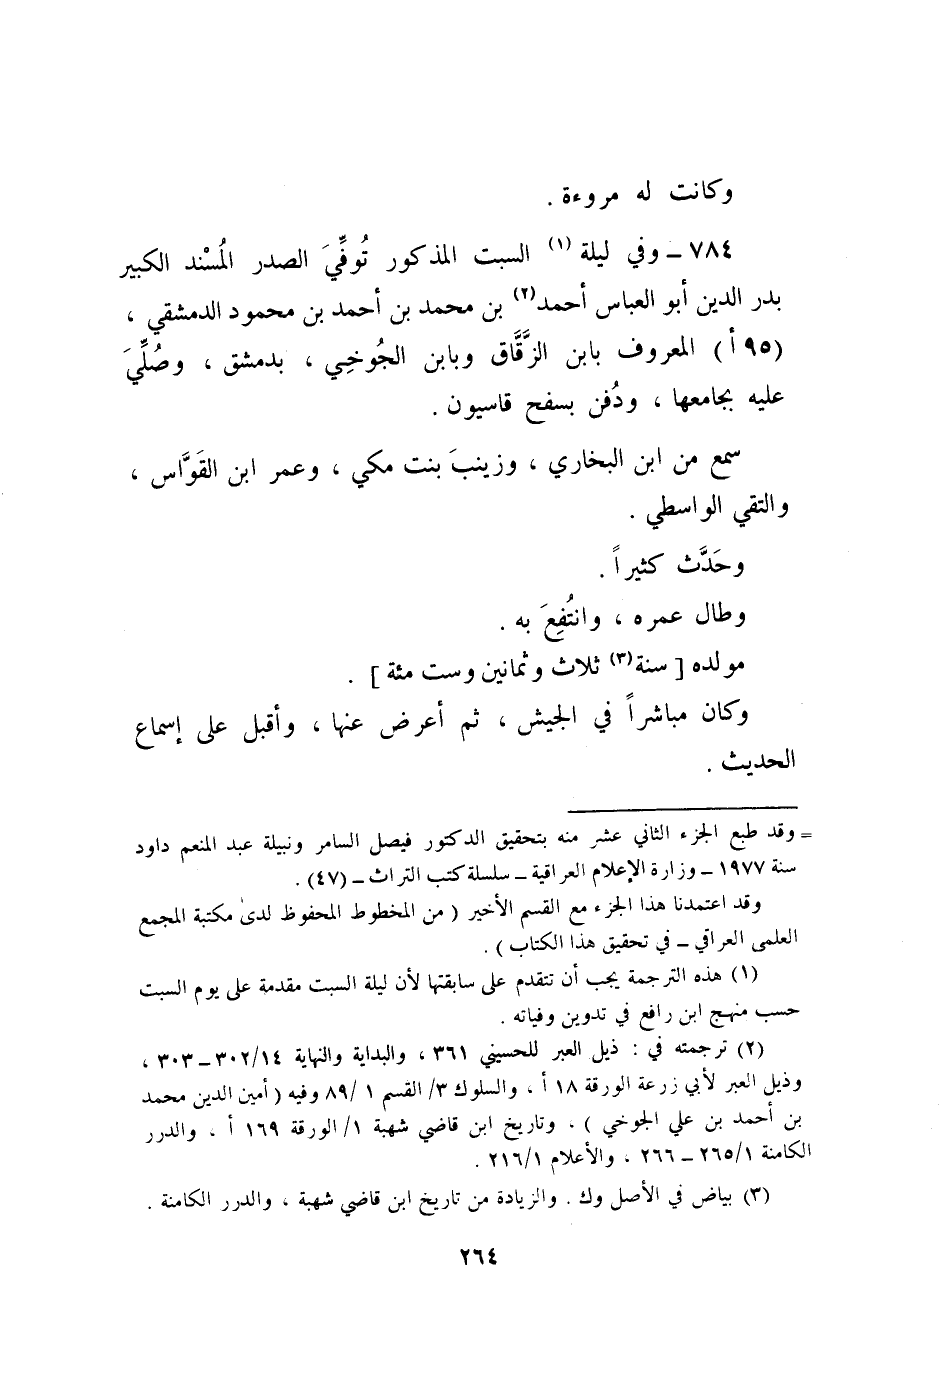 وكانت له مروءة .
٧٨٤ ـ وفي ليلة (١) السبت المذكور تُوفِّيَ الصدر المُسْند الكبير
بدر الدين أبو العباس أحمد(٢) بن محمد بن أحمد بن محمود الدمشقي ،
(٩٥ أ) المعروف بابن الزَّقَّاق وبابن الجُوخي ، بدمشق ، وصُلِّيَ
عليه بجامعها ، ودُفن بسفح قاسيون .
سمع من ابن البخاري ، وزينبَ بنت مكي ، وعمر ابن القَوَّاس ،
والتقي الواسطي .
وحَدَّث كثيراً .
وطال عمره ، وانتُفِعَ به .
مولده [ سنة(٣) ثلاث وثمانين وست مئة ] .
وكان مباشراً في الجيش ، ثم أعرض عنها ، وأقبل على إسماع
الحديث .
= وقد طبع الجزء الثاني عشر منه بتحقيق الدكتور فيصل السامر ونبيلة عبد المنعم داود
سنة ١٩٧٧ ـ وزارة الإعلام العراقية ـ سلسلة كتب التراث ـ (٤٧) .
وقد اعتمدنا هذا الجزء مع القسم الأخير ( من المخطوط المحفوظ لدىٰ مكتبة المجمع
العلمي العراقي ـ في تحقيق هذا الكتاب ) .
(١) هذه الترجمة يجب أن تتقدم على سابقتها لأن ليلة السبت مقدمة على يوم السبت
حسب منهج ابن رافع في تدوين وفياته .
(٢) ترجمته في : ذيل العبر للحسيني ٣٦١ ، والبداية والنهاية ٣٠٢/١٤ ـ ٣٠٣ ،
وذيل العبر لأبي زرعة الورقة ١٨ أ ، والسلوك ٣/ القسم ١ /٨٩ وفيه ( أمين الدين محمد
بن أحمد بن علي الجوخي ) ، وتاريخ ابن قاضي شهبة ١/ الورقة ١٦٩ أ ، والدرر
الكامنة ٢٦٥/١ ـ ٢٦٦ ، والأعلام ٢١٦/١ .
(٣) بياض في الأصل وك . والزيادة من تاريخ ابن قاضي شهبة ، والدرر الكامنة .
٢٦٤